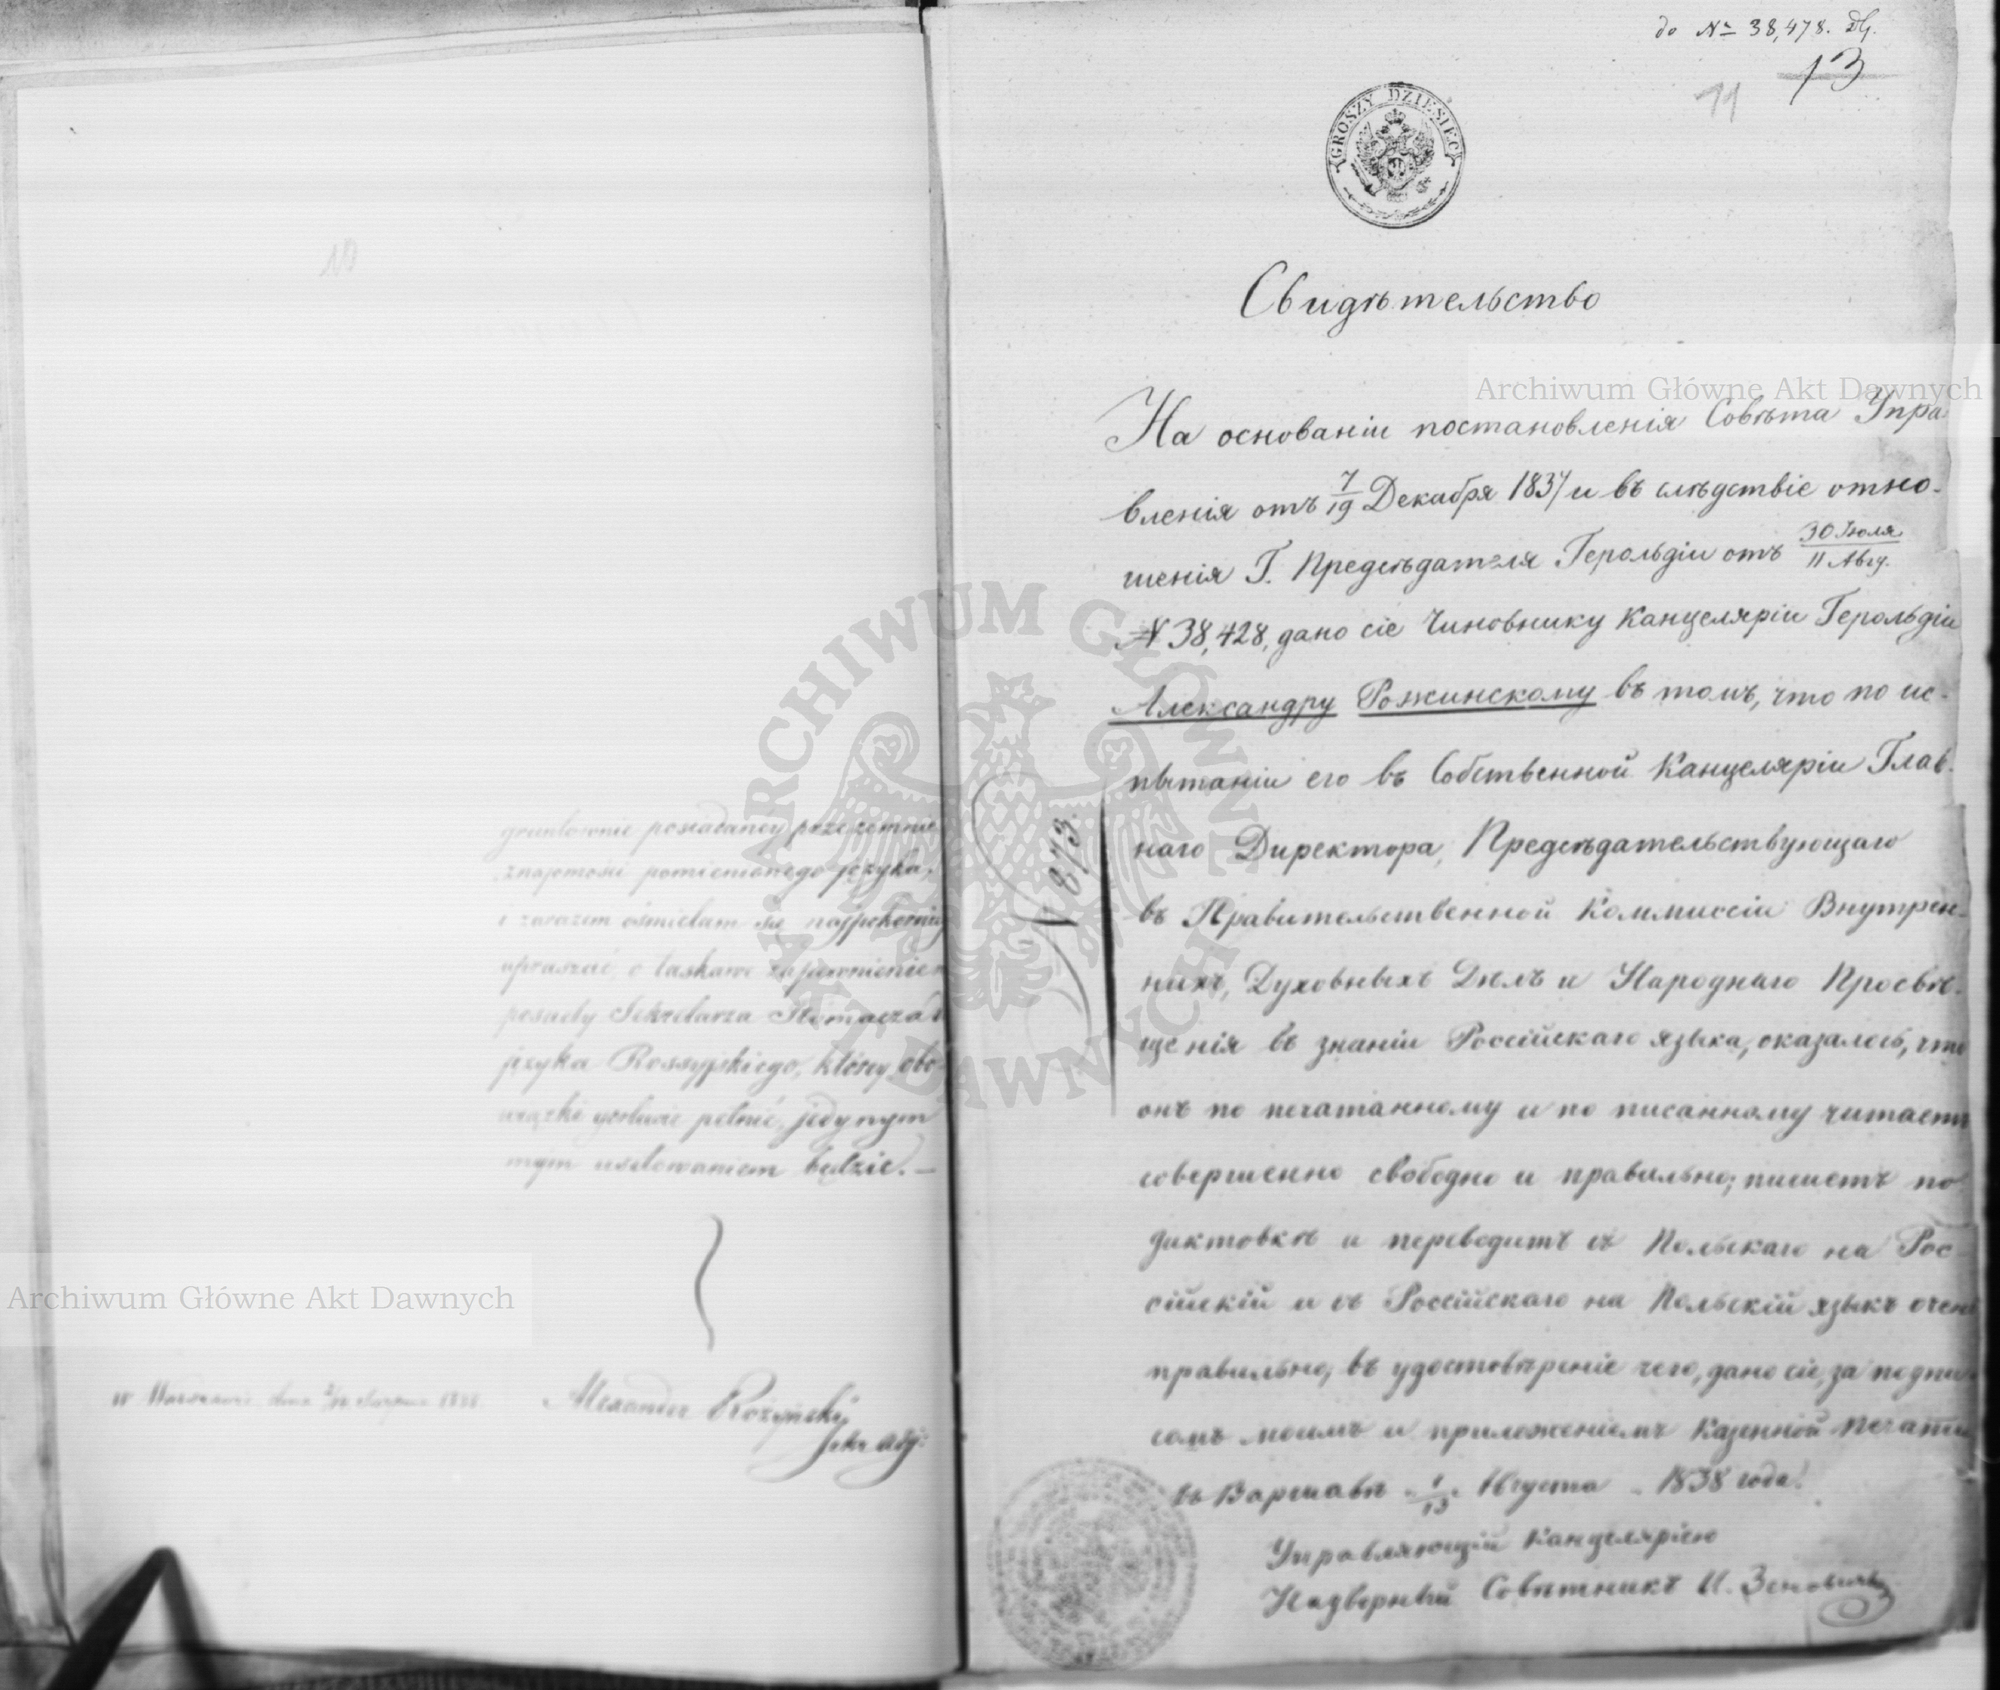 10
gruntownie posiadaney przezemnie
znajomości pomienionego języka,
i zarazem ośmielam się najpokorniej
upraszać o łaskawe zapewnienie
posady Sekretarza Tłómacza
języka Rossyjskiego, której obo-
wiązki gorliwie pełnić, jedynym
mym usiłowaniem będzie. —
w Warszawie dnia Sierpnia 1838.
Alexander Rożyński
do № 38,478.
13
11
GROSZY DZIESIĘĆ
Свидѣтельство
На основаніи постановленія Совѣта Упра-
вленія отъ 7/19 Декабря 1837 и въ слѣдствіе отно-
шенія Г. Предсѣдателя Герольдіи отъ 30 Іюля/11 Авгу.
№ 38,428, дано сіе Чиновнику Канцеляріи Герольдіи
Александру Рожинскому въ томъ, что по ис-
пытаніи его въ Собственной Канцеляріи Глав-
наго Директора, Предсѣдательствующаго
въ Правительственной Коммиссіи Внутрен-
нихъ, Духовныхъ Дѣлъ и Народнаго Просвѣ-
щенія въ знаніи Россійскаго языка, оказалось, что
онъ по печатанному и по писанному читаетъ
совершенно свободно и правильно; пишетъ по
диктовкѣ и переводитъ съ Польскаго на Рос-
сійскій и съ Россійскаго на Польскій языкъ очень
правильно, въ удостовѣреніе чего, дано сіе, за подпи-
сомъ моимъ и приложеніемъ Казенной печати
въ Варшавѣ 1/13 Августа 1838 года.
Управляющій Канцеляріею
Надворный Совѣтникъ И. Зеновичъ
N 873.
Archiwum Główne Akt Dawnych
Archiwum Główne Akt Dawnych
ARCHIWUM GŁÓWNE AKT DAWNYCH